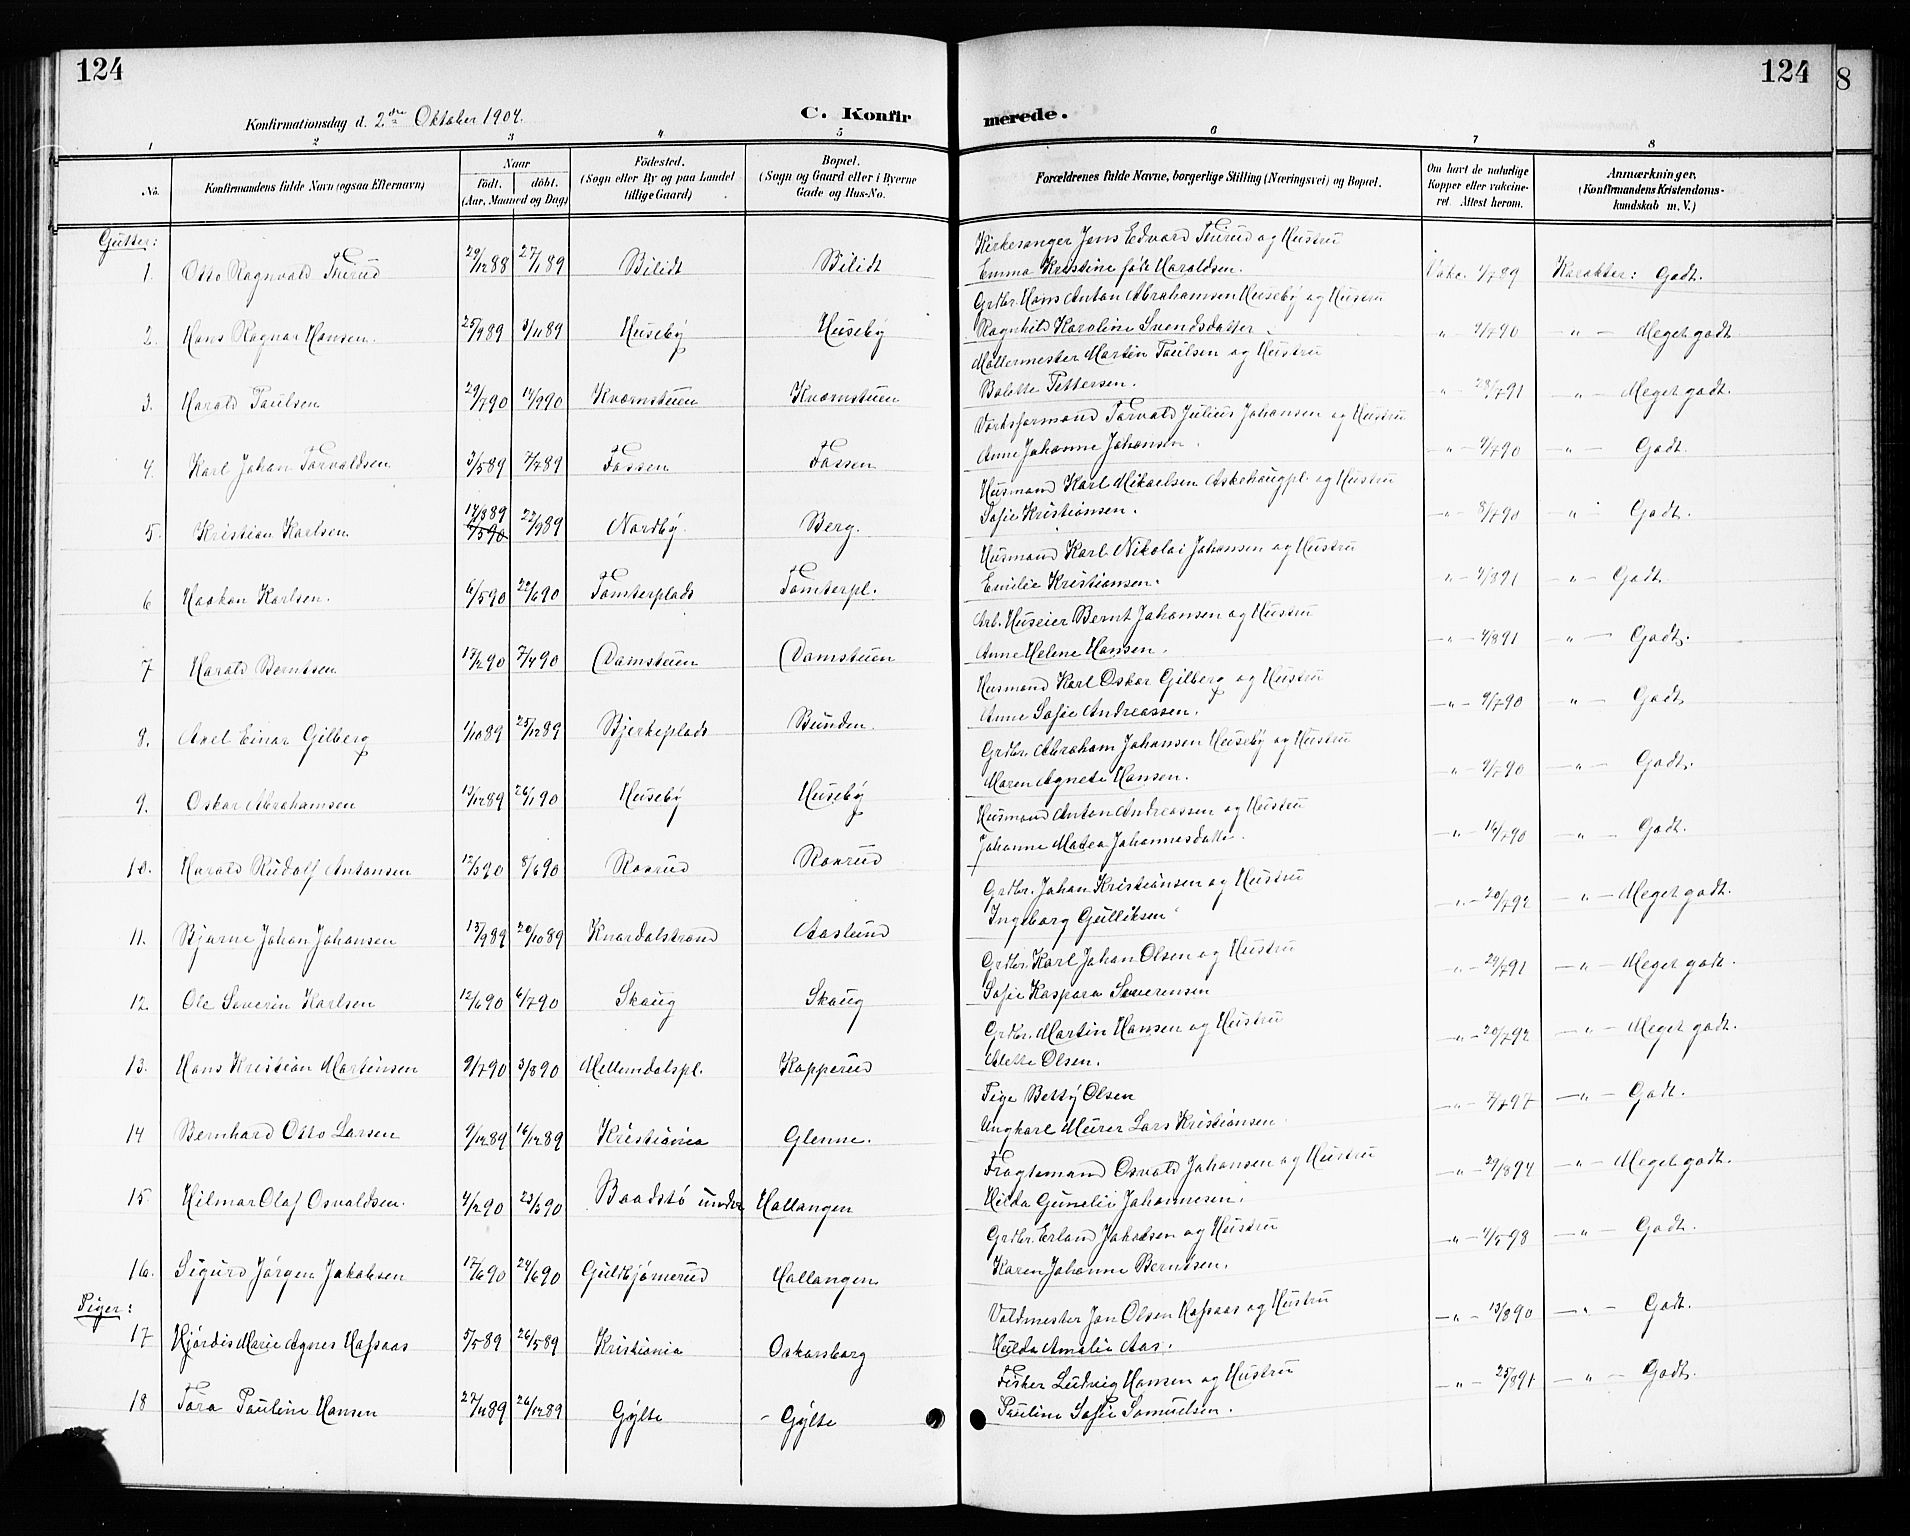 124
124
8
Konfirmationsdag d. 2den Oktober 1904.
C. Konfirmerede.
1 2 3 4 5 6 7 8
No. Konfirmandens fulde Navn (ogsaa Efternavn) Naar födt. döbt. (Aar, Maaned og Dag) Födested. (Sogn eller By og paa Landet tillige Gaard) Bopæl. (Sogn og Gaard eller i Byerne Gade og Hus-No. Forældrenes fulde Navne, borgerlige Stilling (Næringsvei) og Bopæl. Om havt de naturlige Kopper eller vakcineret. Attest herom. Anmærkninger. (Konfirmandens Kristendomskundskab m. V.)
Gutter:
Kirkesanger Jens Edvard Thirud og Hustru
1. Otto Ragnvald Thirud 29/12 88 27/1 89 Bilidt Bilidt Emma Kristine fôdt Haraldsen. Vakc. 4/7 89 Karakter: Godt.
Grdbr. Hans Anton Abrahamsen Huseby og Hustru
2. Hans Ragnar Hansen. 25/9 89 3/11 89 Huseby Huseby Ragnhild Karoline Svendsdatter. " 4/7 90 " — Meget godt
Möllermester Martin Paulsen og Hustru
3. Harald Paulsen 29/7 90 14/9 90 Kvernstuen Kvernstuen Bolette Pettersen. " — 28/7 91 " — Meget godt.
Verksformand Torvald Julius Johansen og Hustru
4. Karl Johan Torvaldsen 3/5 89 7/7 89 Fossen Fossen Anne Johanne Johansen. " — 4/7 90 " — Godt.
Husmand Karl Mikaelsen Askehaugpl. og Hustru
5. Kristian Karlsen 14/8 89 6/5 90 22/9 89 Nordby. Berg. Sofie Kristiansen. " — 8/7 90 " — Godt.
Husmand Karl Nikolai Johansen og Hustru
6 Haakon Karlsen. 6/5 90 22/6 90 Tomterplads Tomterpl. Emilie Kristiansen. " — 4/8 91 " — Godt.
Arb. Huseier Bernt Johansen og Hustru
7 Harald Berntsen 17/2 90 7/4 90 Damstuen Damstuen Anne Helene Hansen. " — 4/8 91 " — Godt.
Husmand Karl Oskar Gilberg og Hustru
8. Axel Einar Gilberg 1/10 89 25/12 89 Bjerkeplads Bunden. Anne Sofie Andreassen. " — 9/7 90 " — Godt.
Grdbr. Abraham Johansen Huseby og Hustru
9. Oskar Abrahamsen 13/12 89 26/1 90 Huseby Huseby Maren Agnete Hansen. " — 9/7 90 " — Godt.
Husmand Anton Andreassen og Hustru
10. Harald Rudolf Antonsen 12/3 90 8/6 90 Roxrud Roxrud Johanne Matea Johannesdatter. " — 16/7 90 " — Godt.
Grdbr. Johan Kristiansen og Hustru
11. Bjarne Johan Johansen 15/9 89 20/10 89 Knardalstrand Aaslund Ingeborg Gulliksen " — 20/7 92 " — Meget godt.
Grdbr. Karl Johan Olsen og Hustru
12. Ole Severin Karlsen 12/6 90 6/7 90 Skaug Skaug Sofie Kaspara Severensen " — 29/7 91 " — Meget godt.
Grdbr. Martin Hansen og Hustru
13. Hans Kristian Martinsen 9/7 90 3/8 90 Mellemdalspl. Kopperud Alette Olsen. " — 20/7 92 " — Meget godt.
Pige Betty Olsen
14 Bernhard Otto Larsen 9/12 89 16/12 89 Kristiania Glenne. Ungkarl Murer Lars Kristiansen " — 4/7 97 " — Godt.
Fragtemand Osvald Johansen og Hustru
15 Hilmar Olaf Osvaldsen. 4/2 90 23/3 90 Baadstö under Hallangen Hilda Gunelie Johannesen. " — 29/8 94 " — Meget godt.
Grdbr. Erland Jakobsen og Hustru
16. Sigurd Jörgen Jakobsen 17/6 90 29/6 90 Guldbjörnerud Hallangen Karen Johanne Berntsen. " — 98 " — Godt.
Piger:
Voldmester Jon Olsen Hafsaas og Hustru
17 Hjördis Marie Agnes Hafsaas 5/5 89 26/5 89 Kristiania Oskarsborg Hulda Amalie Aas. " — 13/8 90 " — Godt.
Fisker Ludvig Hansen og Hustru
18 Tora Pauline Hansen 27/11 89 26/12 89 Gylte Gylte Pauline Sofie Samuelsen. " — 25/8 91 " — Godt.